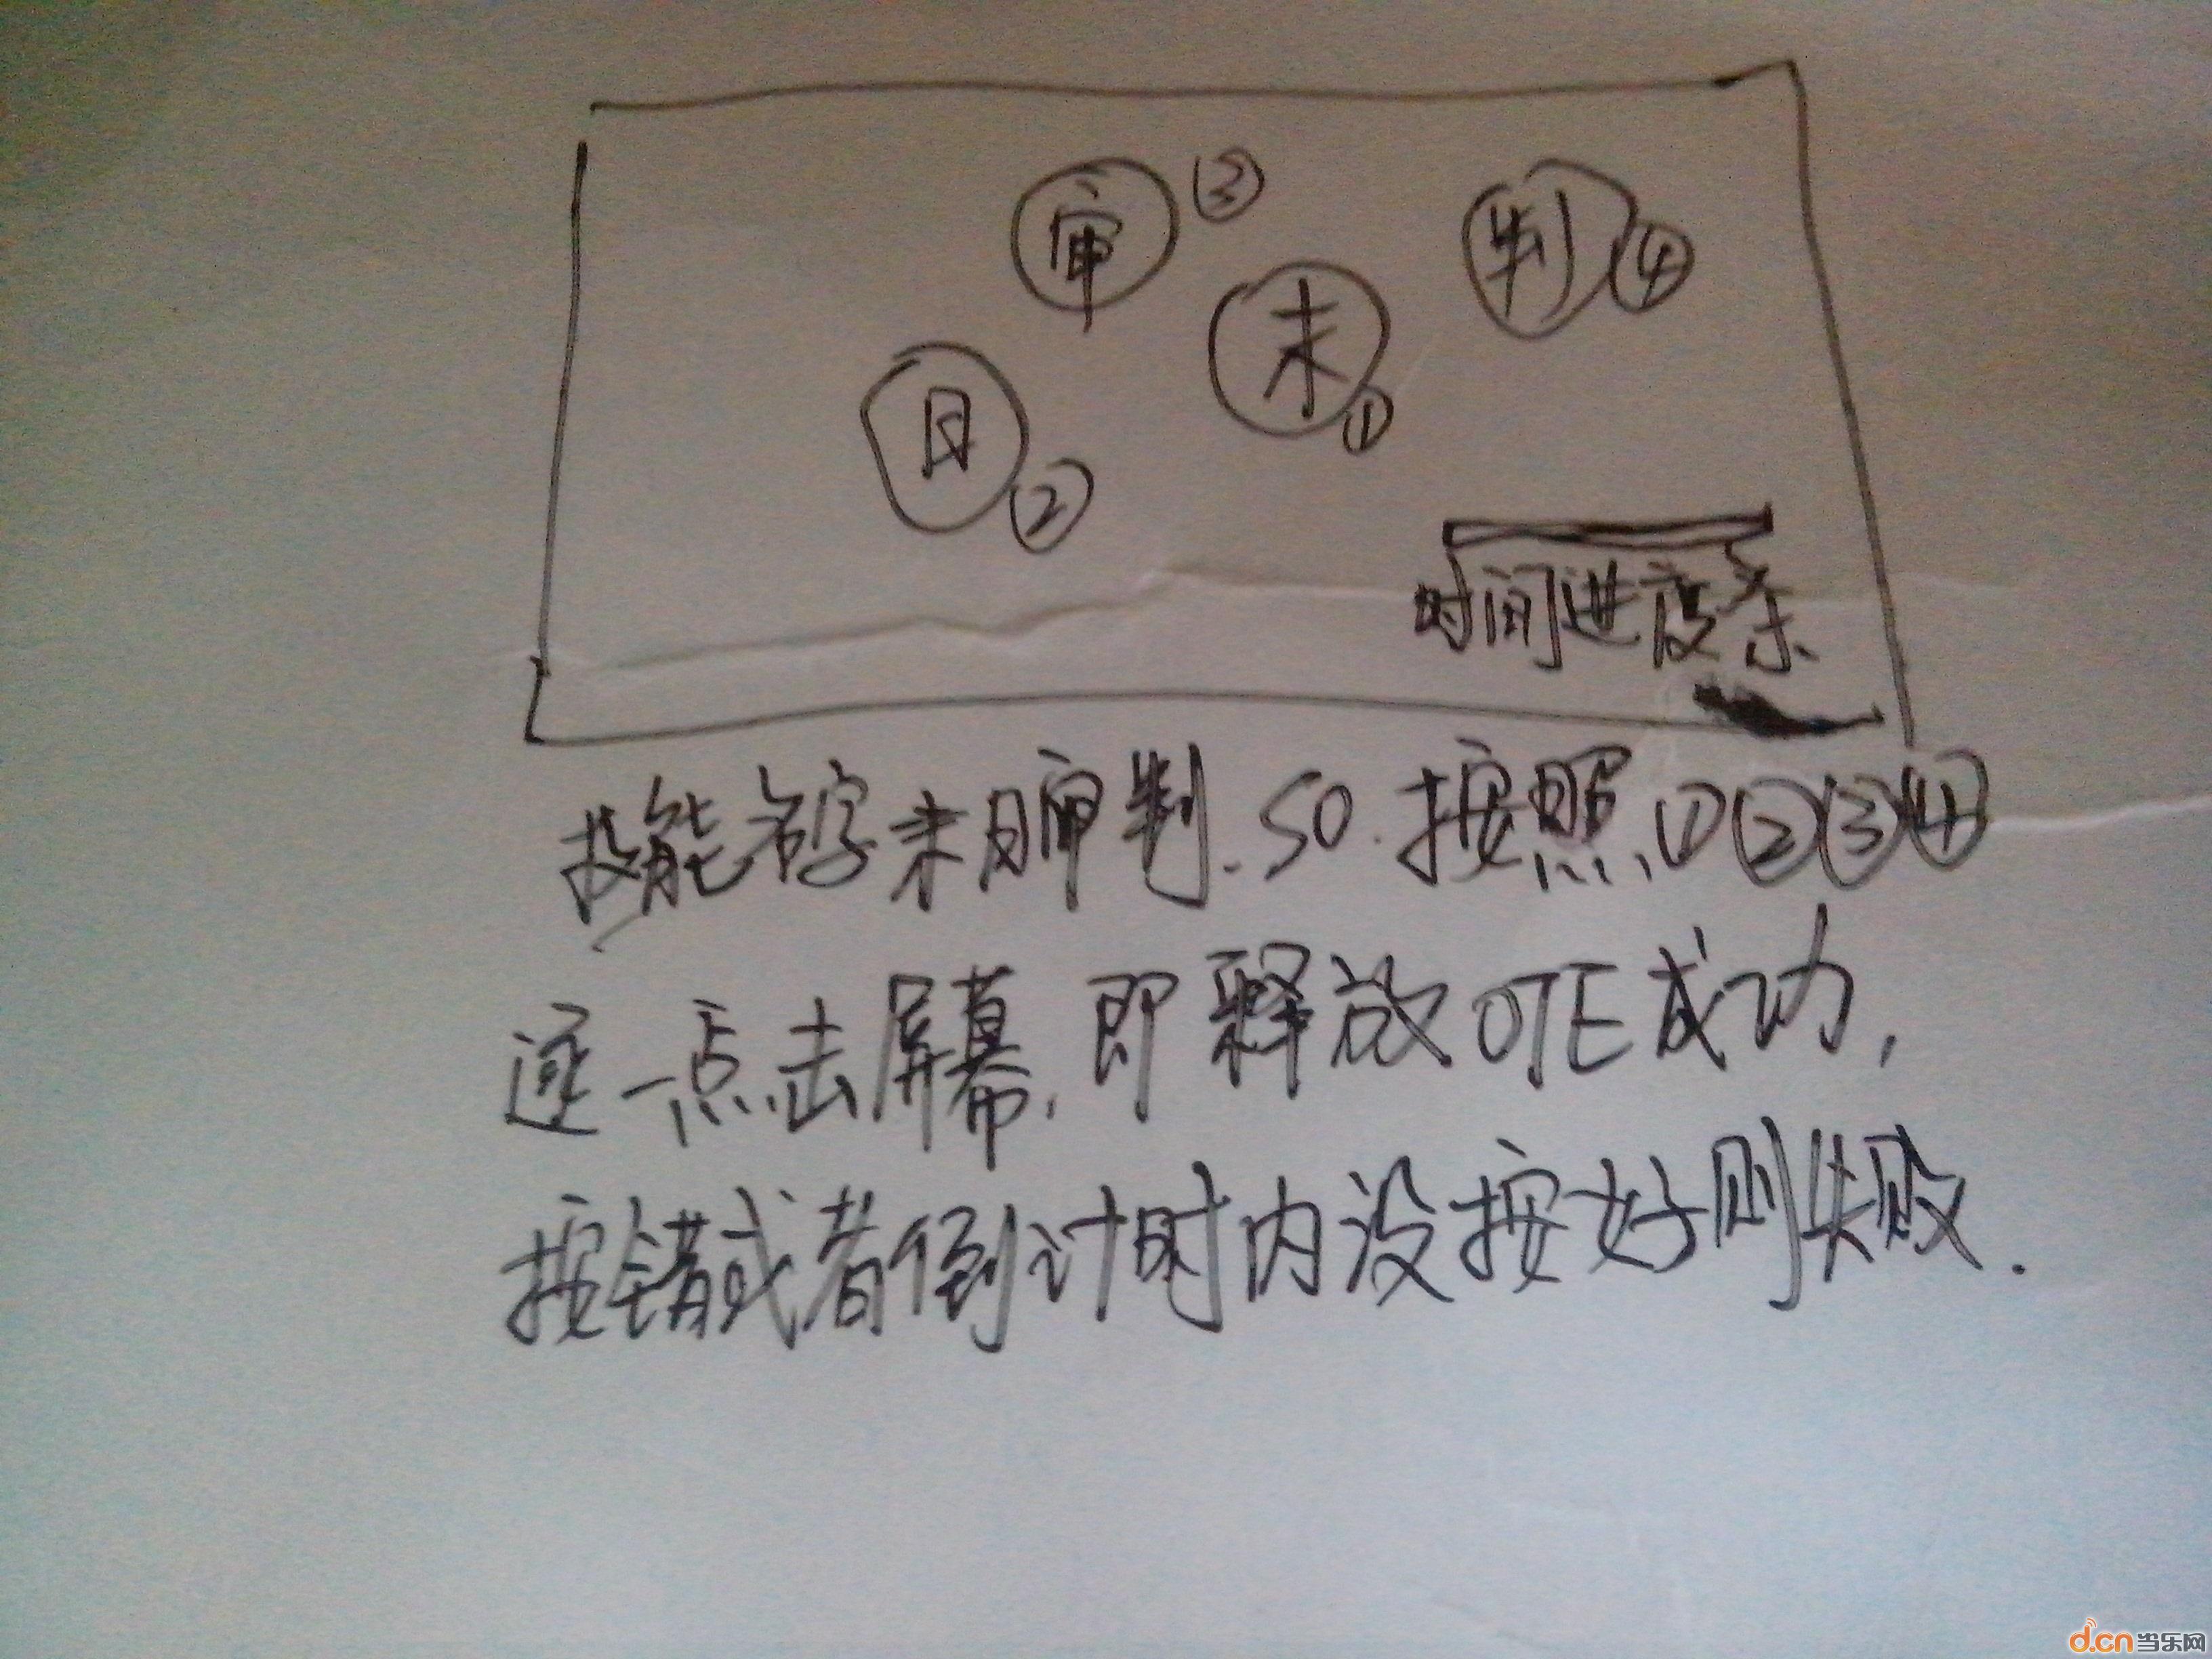 审 ③
判 ④
末 ①
日 ②
时间进度条
技能名字末日审判.SO.按照.①②③④
逐一点击屏幕.即释放OTE成功,
按错或者倒计时内没按好则失败.
d.cn当乐网